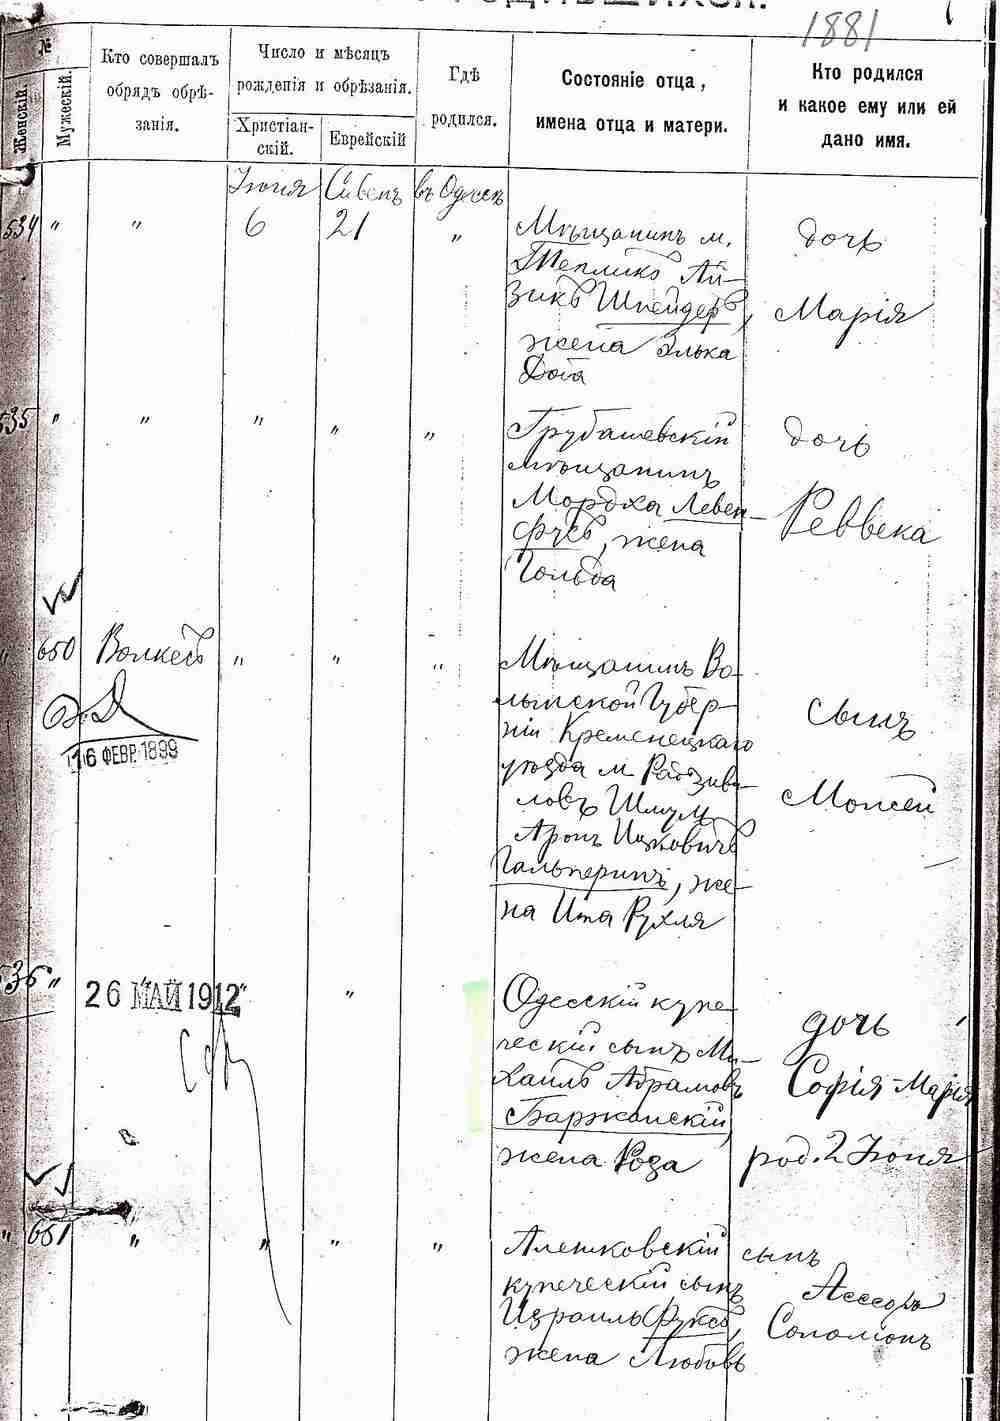 1881
№
Женскій.
Мужескій.
Кто совершалъ
обрядъ обрѣ-
занія.
Число и мѣсяцъ
рожденія и обрѣзанія.
Христіан-
скій.
Еврейскій
Гдѣ
родился.
Состояніе отца,
имена отца и матери.
Кто родился
и какое ему или ей
дано имя.
Іюня
Сивенъ
въ Одессѣ
534 " " 6 21 "
Мѣщанинъ м.
Тепликъ Ай-
зикъ Шнейдеръ,
жена Элька
дочь
Марія
535 " " " " "
Грубашевскій
мѣщанинъ
Мордха Левен-
фусъ, жена
Гольда
дочь
Реввека
" 650 Волкесъ " " "
Мѣщанинъ Во-
лынской Губер-
ніи Кременецкаго
уѣзда м. Радзиви-
ловъ Шмуль
Аронъ Ицковичъ
Гальперинъ, же-
на Ита Рухля
сынъ
Моисей
16 ФЕВР. 1899
536 " "
26 МАЙ 1912
Одесскій купе-
ческій сынъ Ми-
хаилъ Абрамовъ
Баржанскій,
жена Роза
дочь
Софія-Марія
род. 2 Іюня
" 651 " " " "
Алешковскій
купеческій сынъ
Израиль Фуксъ,
жена Любовь
сынъ
Ассеоръ
Соломонъ